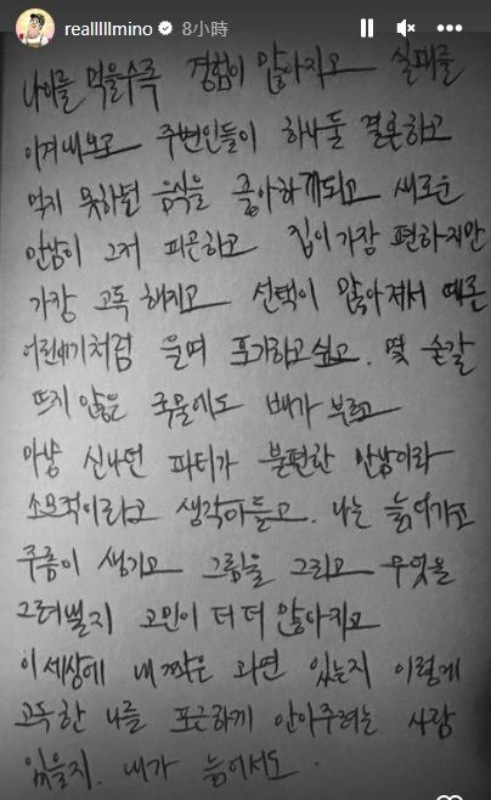 realllllmino 8小時
나이를 먹을수록 경험이 많아지고 실패를
이겨내보고 주변인들이 하나둘 결혼하고
먹지 못하던 음식을 좋아하게되고 새로운
만남이 그저 피곤하고 집이 가장 편하지만
가장 고독 해지고 선택이 많아져서 때론
어린애기처럼 울며 포기하고싶고. 몇 숟갈
뜨지 않은 국물에도 배가 부르고
마냥 신나던 파티가 불편한 만남이라
소모적이라고 생각이들고. 나는 늙어가고
주름이 생기고 그림을 그리고 무엇을
그려낼지 고민이 더 더 많아지고
이 세상에 내 짝은 과연 있는지 이렇게
고독한 나를 포근하게 안아주려는 사람
있을지. 내가 늙어서도.